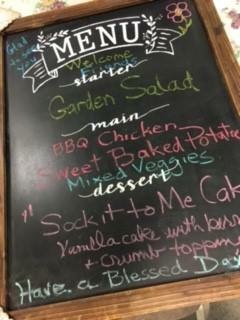 Glad
to
you
MENU
Welcome
Friends
starter
Garden Salad
main
BBQ Chicken
Sweet Baked Potatoe
Mixed Veggies
dessert
Sock it to Me Cak
Vanilla cake with
+ crumb topp
Have a Blessed Day